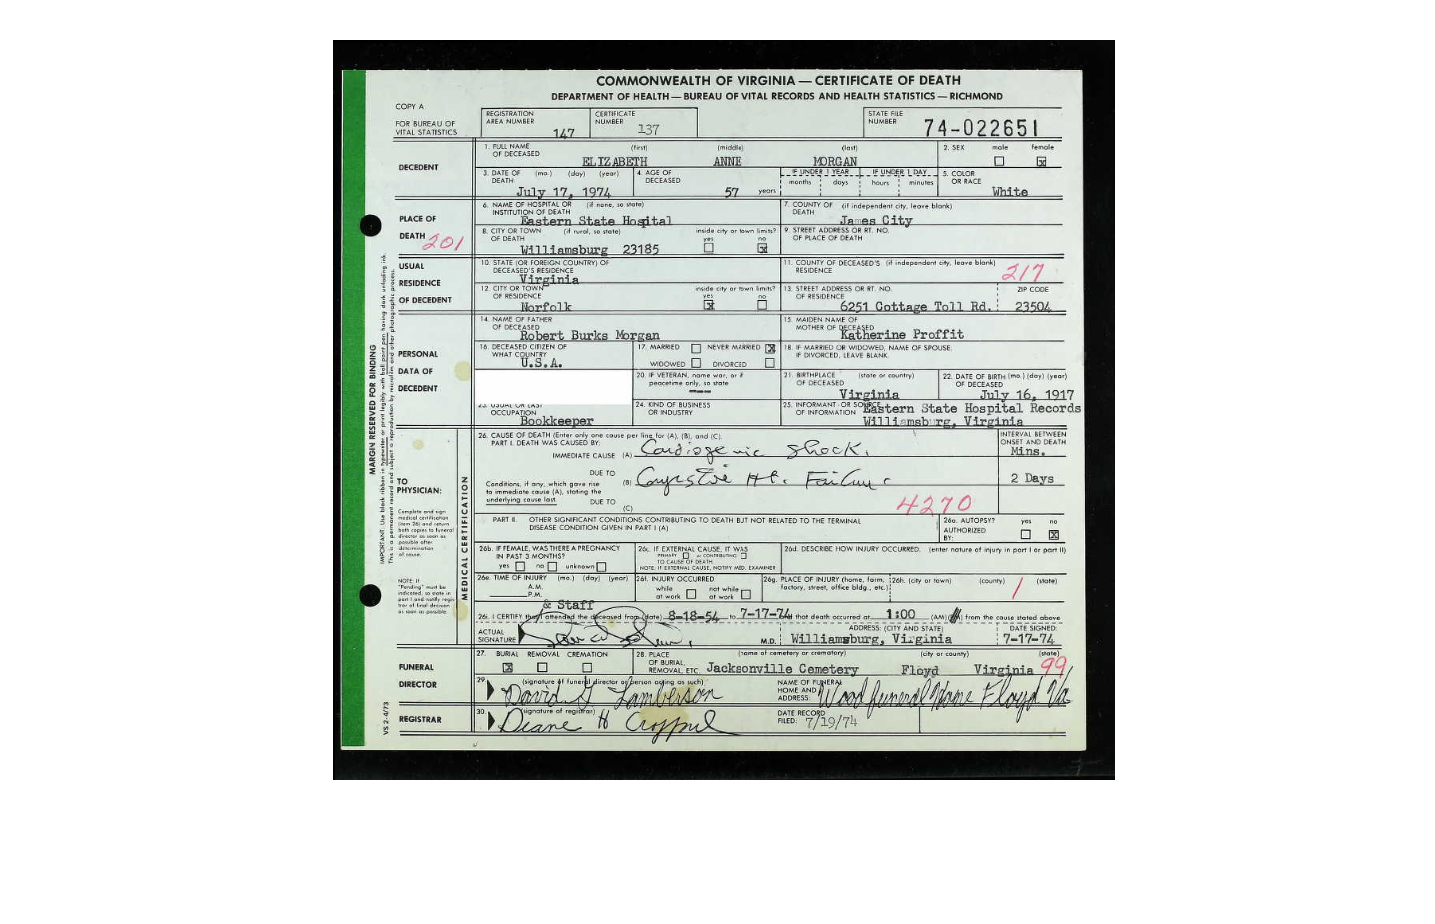 COMMONWEALTH OF VIRGINIA — CERTIFICATE OF DEATH
DEPARTMENT OF HEALTH — BUREAU OF VITAL RECORDS AND HEALTH STATISTICS — RICHMOND
COPY A
FOR BUREAU OF VITAL STATISTICS
REGISTRATION AREA NUMBER 147
CERTIFICATE NUMBER 137
STATE FILE NUMBER 74-022651
DECEDENT
1. FULL NAME OF DECEASED (first) (middle) (last)
ELIZABETH ANNE MORGAN
2. SEX male female
3. DATE OF DEATH (mo.) (day) (year)
July 17, 1974
4. AGE OF DECEASED 57 years
IF UNDER 1 YEAR months days
IF UNDER 1 DAY hours minutes
5. COLOR OR RACE White
PLACE OF DEATH 201
6. NAME OF HOSPITAL OR INSTITUTION OF DEATH (if none, so state)
Eastern State Hospital
7. COUNTY OF DEATH (if independent city, leave blank)
James City
8. CITY OR TOWN OF DEATH (if rural, so state)
Williamsburg 23185
inside city or town limits? yes no
9. STREET ADDRESS OR RT. NO. OF PLACE OF DEATH
USUAL RESIDENCE OF DECEDENT
10. STATE (OR FOREIGN COUNTRY) OF DECEASED'S RESIDENCE
Virginia
11. COUNTY OF DECEASED'S RESIDENCE (if independent city, leave blank)
217
12. CITY OR TOWN OF RESIDENCE
Norfolk
inside city or town limits? yes no
13. STREET ADDRESS OR RT. NO. OF RESIDENCE
6251 Cottage Toll Rd.
ZIP CODE 23504
PERSONAL DATA OF DECEDENT
14. NAME OF FATHER OF DECEASED
Robert Burks Morgan
15. MAIDEN NAME OF MOTHER OF DECEASED
Katherine Proffit
16. DECEASED CITIZEN OF WHAT COUNTRY
U.S.A.
17. MARRIED NEVER MARRIED
WIDOWED DIVORCED
18. IF MARRIED OR WIDOWED, NAME OF SPOUSE. IF DIVORCED, LEAVE BLANK.
20. IF VETERAN, name war, or if peacetime only, so state
21. BIRTHPLACE OF DECEASED (state or country)
Virginia
22. DATE OF BIRTH OF DECEASED (mo.) (day) (year)
July 16, 1917
23. USUAL OR LAST OCCUPATION
Bookkeeper
24. KIND OF BUSINESS OR INDUSTRY
25. INFORMANT - OR SOURCE OF INFORMATION
Eastern State Hospital Records
Williamsburg, Virginia
MARGIN RESERVED FOR BINDING
TO PHYSICIAN:
Complete and sign medical certification (item 26) and return both copies to funeral director as soon as possible after determination of cause.
NOTE: If "Pending" must be indicated, so state in part I and notify registrar of final decision as soon as possible.
MEDICAL CERTIFICATION
26. CAUSE OF DEATH (Enter only one cause per line for (A), (B), and (C).
PART I. DEATH WAS CAUSED BY:
IMMEDIATE CAUSE (A) Cardiogenic shock.
INTERVAL BETWEEN ONSET AND DEATH
Mins.
DUE TO (B) Congestive Ht. Failure
2 Days
Conditions, if any, which gave rise to immediate cause (A), stating the underlying cause last.
DUE TO (C)
4270
PART II. OTHER SIGNIFICANT CONDITIONS CONTRIBUTING TO DEATH BUT NOT RELATED TO THE TERMINAL DISEASE CONDITION GIVEN IN PART I (A)
26a. AUTOPSY? yes no
AUTHORIZED BY:
26b. IF FEMALE, WAS THERE A PREGNANCY IN PAST 3 MONTHS?
yes no unknown
26c. IF EXTERNAL CAUSE, IT WAS
PRIMARY or CONTRIBUTING
TO CAUSE OF DEATH
NOTE: IF EXTERNAL CAUSE, NOTIFY MED. EXAMINER
26d. DESCRIBE HOW INJURY OCCURRED. (enter nature of injury in part I or part II)
26e. TIME OF INJURY (mo.) (day) (year)
A.M.
P.M.
26f. INJURY OCCURRED
while at work not while at work
26g. PLACE OF INJURY (home, farm, factory, street, office bldg., etc.)
26h. (city or town) (county) (state)
1
& Staff
26i. I CERTIFY that I attended the deceased from (date) 8-18-54 to 7-17-74 that death occurred at 1:00 (AM) from the cause stated above
ACTUAL SIGNATURE M.D.
ADDRESS: (CITY AND STATE)
Williamsburg, Virginia
DATE SIGNED:
7-17-74
FUNERAL DIRECTOR
27. BURIAL REMOVAL CREMATION
28. PLACE OF BURIAL, REMOVAL, ETC. (name of cemetery or crematory) (city or county) (state)
Jacksonville Cemetery Floyd Virginia 99
29. (signature of funeral director or person acting as such)
David G Lamberson
NAME OF FUNERAL HOME AND ADDRESS:
Wood funeral Home Floyd Va
REGISTRAR
30. (signature of registrar)
Diane H
DATE RECORD FILED: 7/19/74
VS 2-4/73